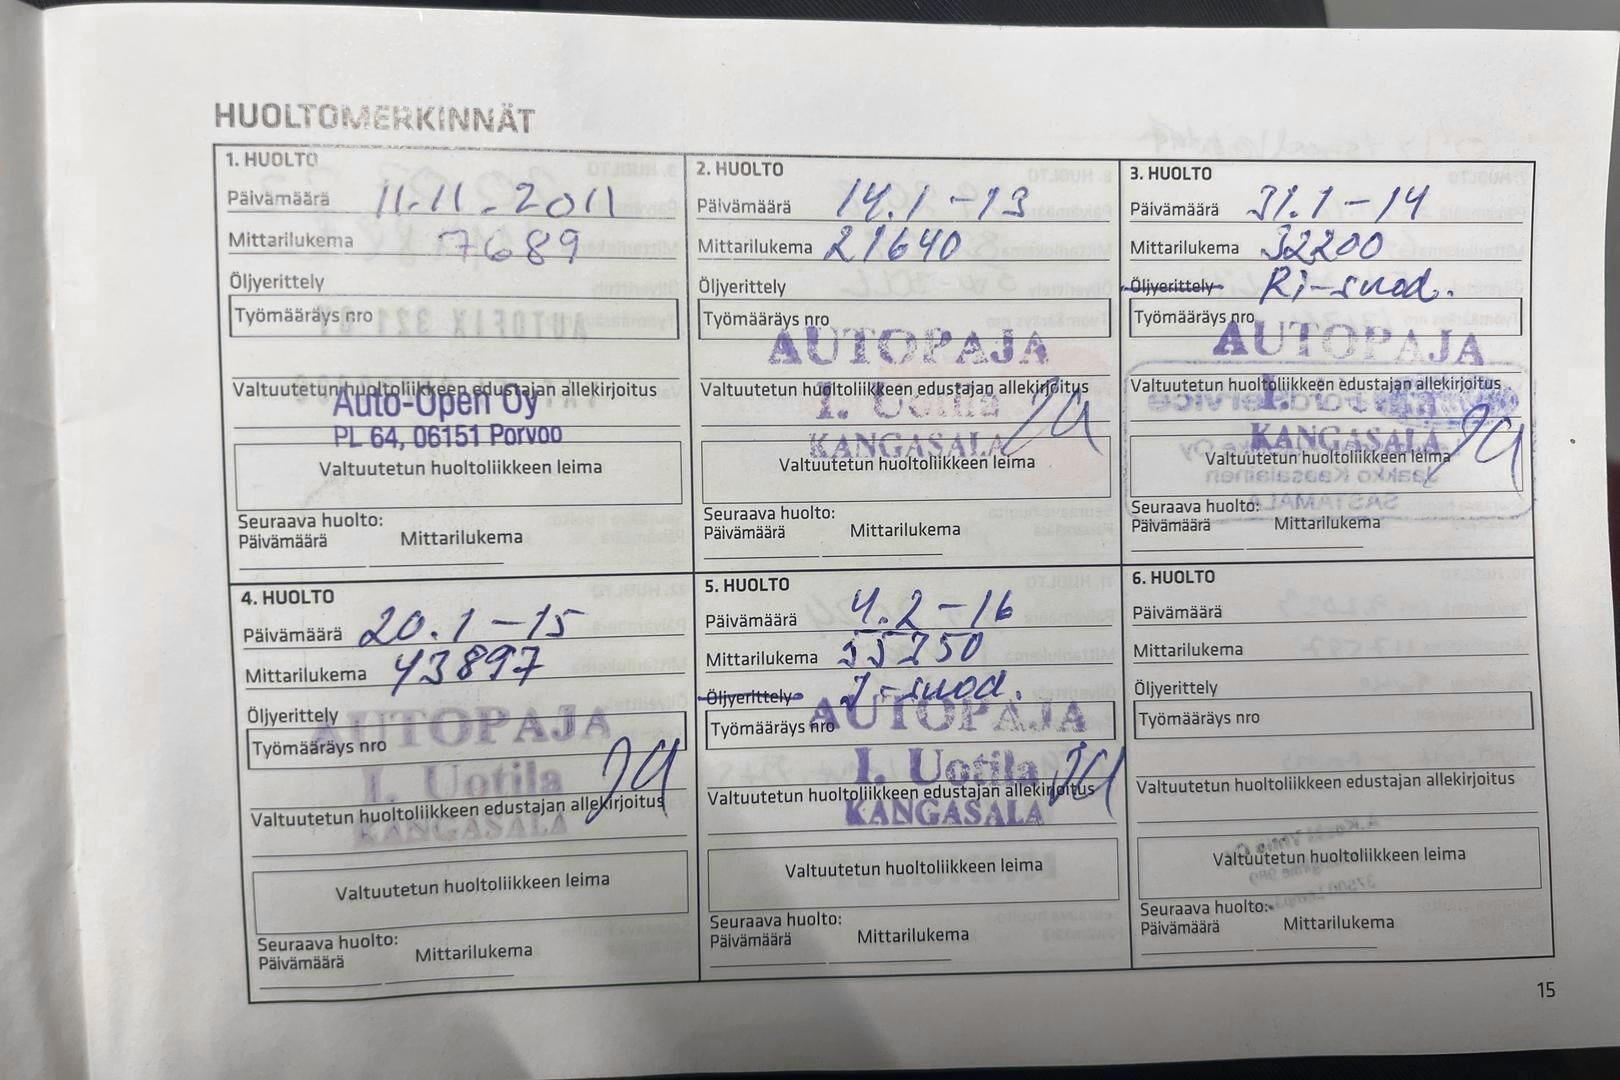 HUOLTOMERKINNÄT
1. HUOLTO
Päivämäärä 11.11.2011
Mittarilukema 7689
Öljyerittely
Työmääräys nro
Valtuutetun huoltoliikkeen edustajan allekirjoitus
Auto-Open Oy
PL 64, 06151 Porvoo
Valtuutetun huoltoliikkeen leima
Seuraava huolto:
Päivämäärä Mittarilukema
2. HUOLTO
Päivämäärä 14.1-13
Mittarilukema 21640
Öljyerittely
Työmääräys nro
AUTOPAJA
Valtuutetun huoltoliikkeen edustajan allekirjoitus
I. Uotila
KANGASALA
Valtuutetun huoltoliikkeen leima
Seuraava huolto:
Päivämäärä Mittarilukema
3. HUOLTO
Päivämäärä 31.1-14
Mittarilukema 32200
Öljyerittely Ri-suod.
Työmääräys nro
AUTOPAJA
Valtuutetun huoltoliikkeen edustajan allekirjoitus
I.
KANGASALA
Valtuutetun huoltoliikkeen leima
Seuraava huolto:
Päivämäärä Mittarilukema
4. HUOLTO
Päivämäärä 20.1-15
Mittarilukema 43897
Öljyerittely
AUTOPAJA
Työmääräys nro
I. Uotila
Valtuutetun huoltoliikkeen edustajan allekirjoitus
KANGASALA
Valtuutetun huoltoliikkeen leima
Seuraava huolto:
Päivämäärä Mittarilukema
5. HUOLTO
Päivämäärä 4.2-16
Mittarilukema
Öljyerittely I-suod.
AUTOPAJA
Työmääräys nro
I. Uotila
Valtuutetun huoltoliikkeen edustajan allekirjoitus
KANGASALA
Valtuutetun huoltoliikkeen leima
Seuraava huolto:
Päivämäärä Mittarilukema
6. HUOLTO
Päivämäärä
Mittarilukema
Öljyerittely
Työmääräys nro
Valtuutetun huoltoliikkeen edustajan allekirjoitus
Valtuutetun huoltoliikkeen leima
Seuraava huolto:
Päivämäärä Mittarilukema
15